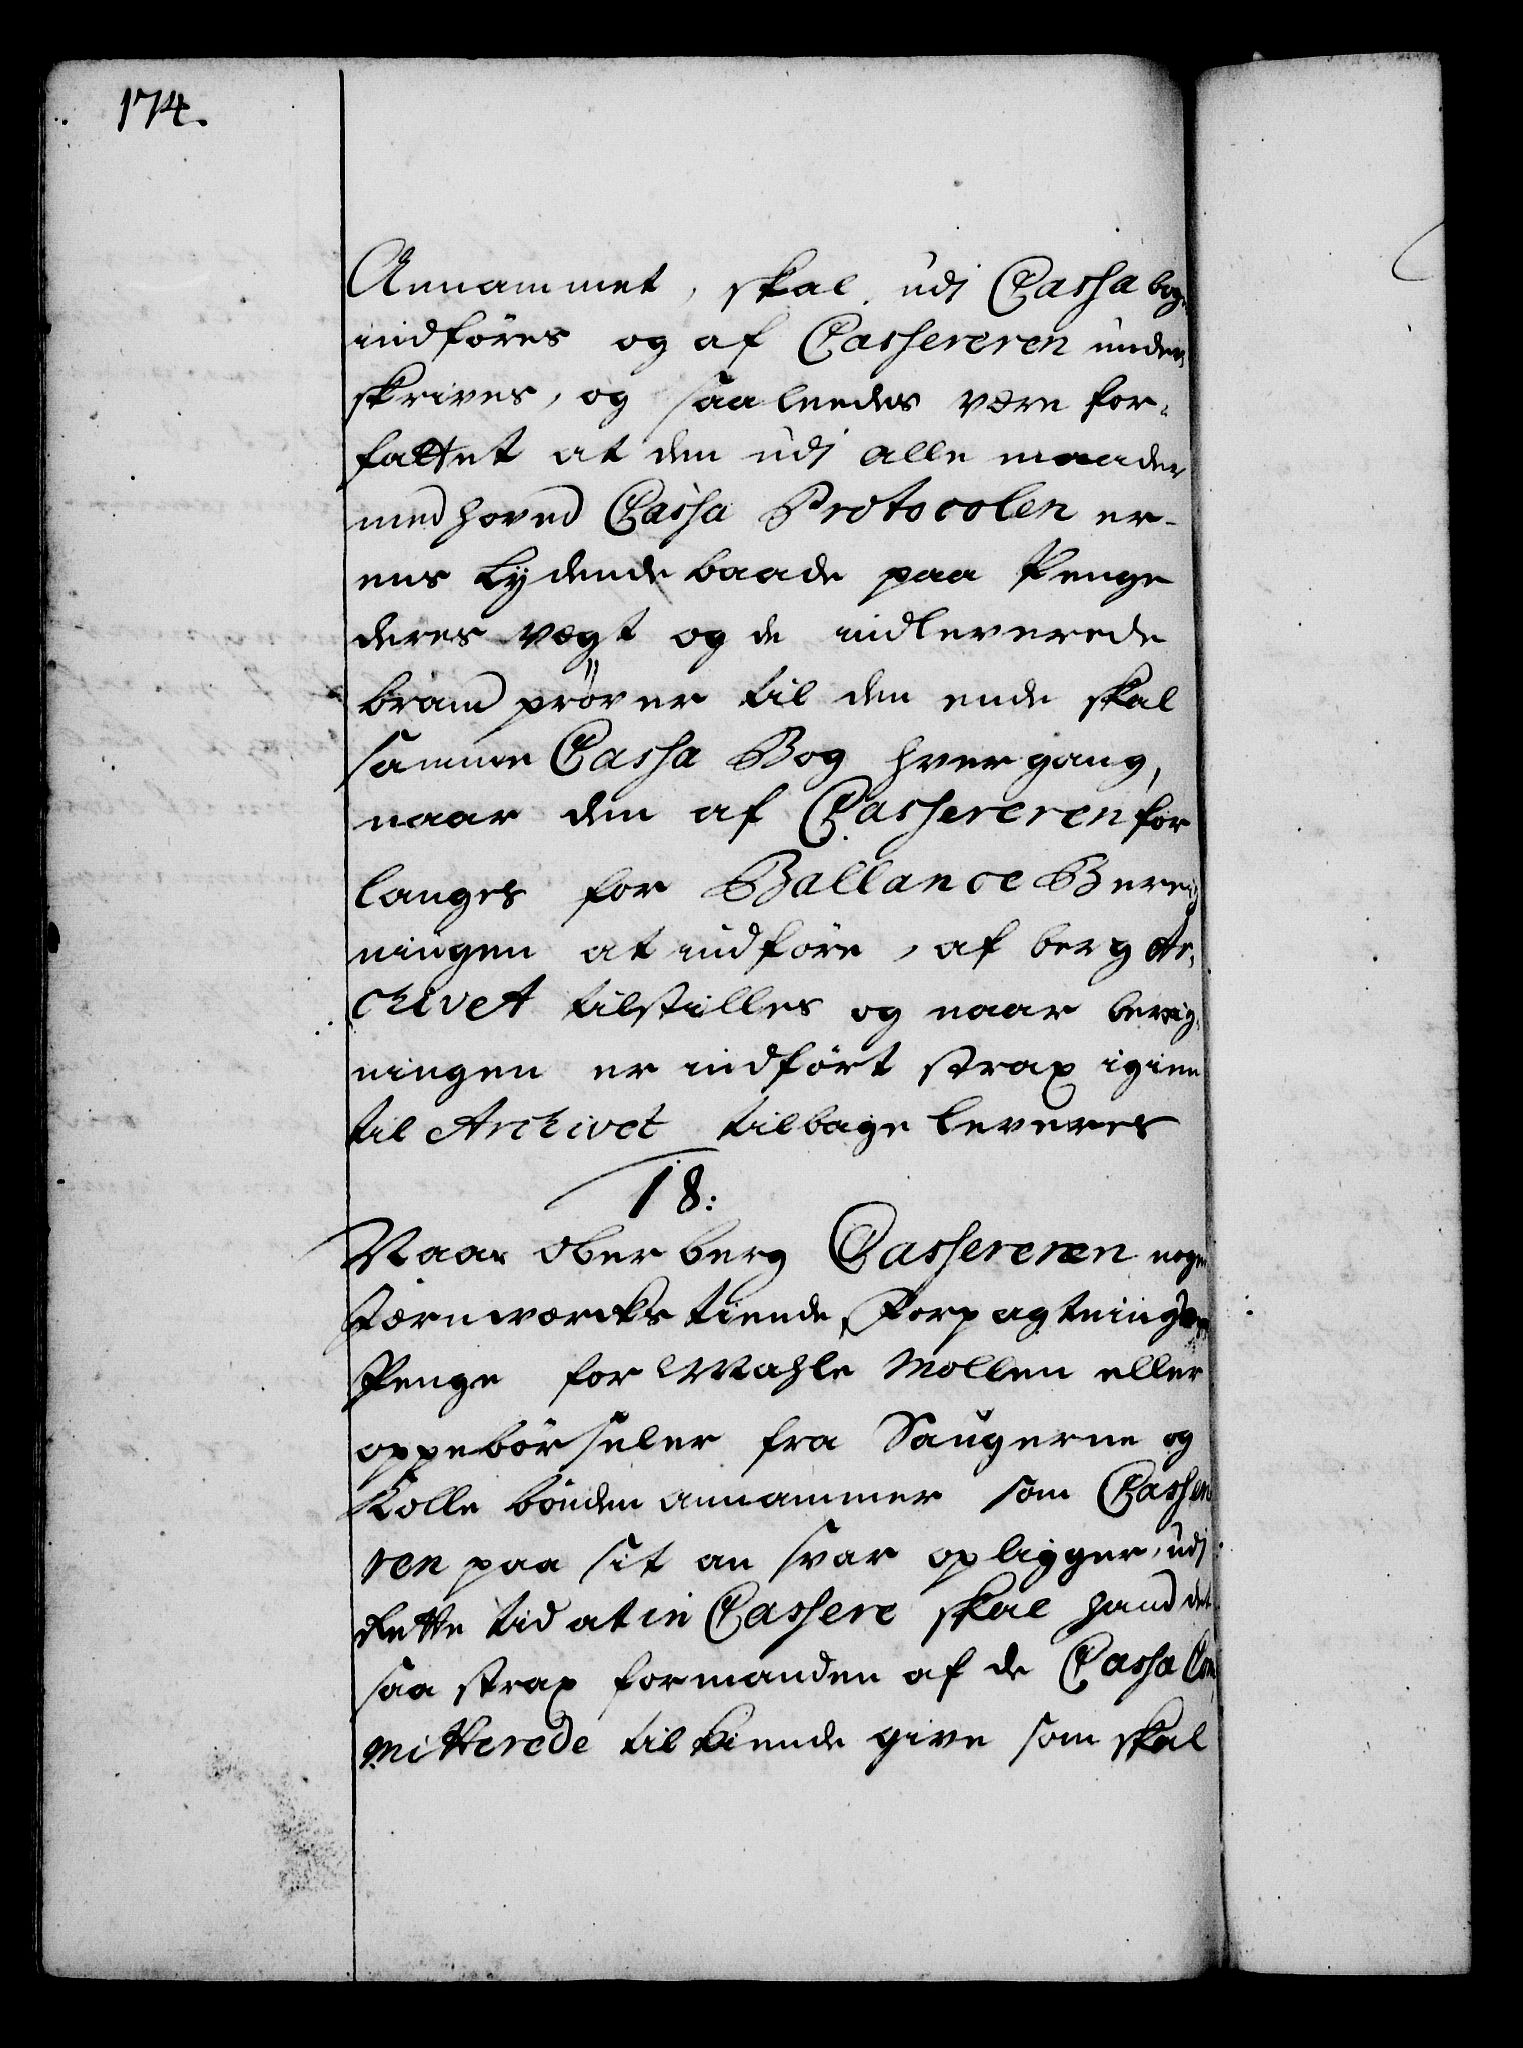 174.
Annammet, skal, udj Cassa bog,
indføres og af Cassereren under
skrives, og saaleedes være for-
fattet at den udj alle maader
med hoved Cassa Protocolen er-
ens lydende baade paa Penge
deres vegt og de indleverede
brand prøver til den ende skal
samme Cassa Bog hver gang,
naar den af Cassereren for
langes for Ballance Bereg
ningen at indføre, af berg Ar,
chivet tilstilles og naar bereg,
ningen er indført strax igien
til Archivet tilbage leveres
18:
Naar Ober berg Cassereren nogen
Jærnwærcks tiende, Forpagtnings
Penge for Mahle Møllen eller
oppebørseler fra Saugerne og
Kolle bønder annammer som Casse
ren paa sit an svar opligger, udj
rette tid at in Cassere skal hand det
saa strax formanden af de Cassa Com
mitterede tilkiende give som skal